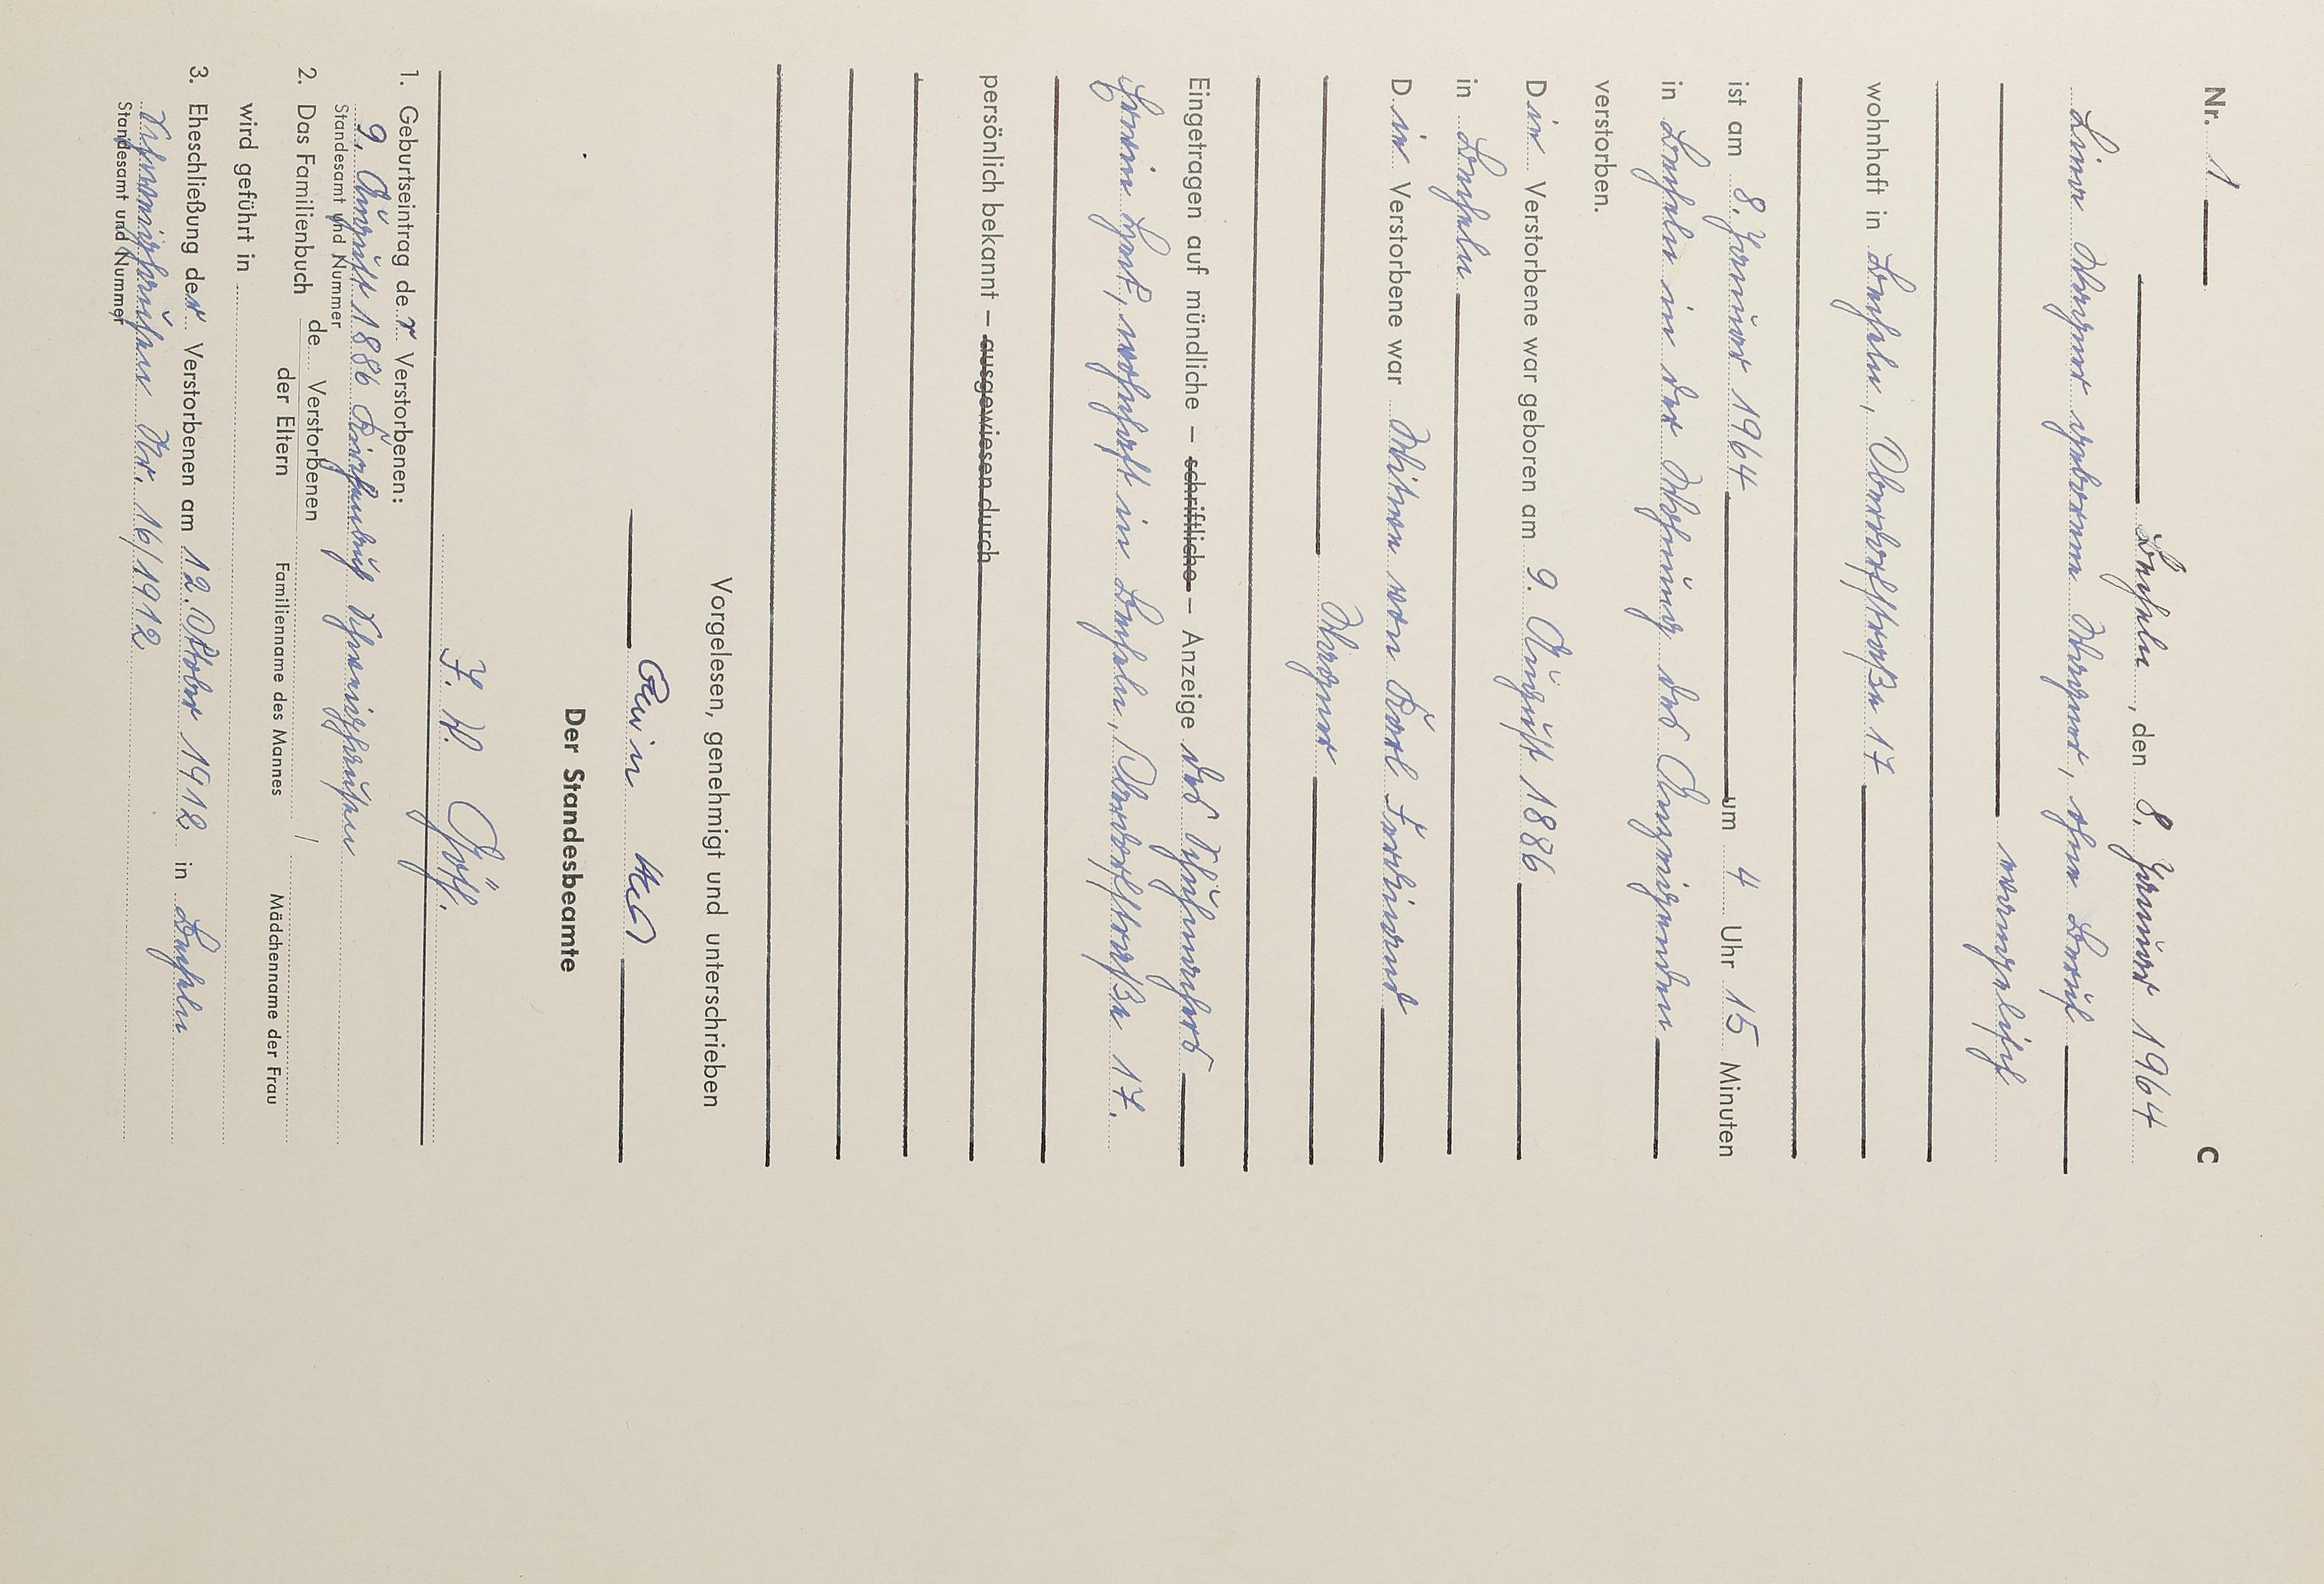 Nr. 1 C
Becheln, den 8. Januar 1964
Lina Wagner geborene Wagner, ohne Beruf
evangelisch
wohnhaft in Becheln, Oberdorfstraße 17
ist am 8. Januar 1964 um 4 Uhr 15 Minuten
in Becheln in der Wohnung des Anzeigenden
verstorben.
Die Verstorbene war geboren am 9. August 1886
in Becheln
Die Verstorbene war Witwe von Karl Ferdinand
Wagner
Eingetragen auf mündliche – schriftliche – Anzeige des Schuhmachers
Erwin wohnhaft in Becheln, Oberdorfstraße 17.
persönlich bekannt – ausgewiesen durch
Vorgelesen, genehmigt und unterschrieben
Erwin
Der Standesbeamte
J. V.
1. Geburtseintrag der Verstorbenen:
9. August 1886 Kirchenbuch Schweighausen
Standesamt und Nummer
2. Das Familienbuch de Verstorbenen /
der Eltern Familienname des Mannes Mädchenname der Frau
wird geführt in
3. Eheschließung der Verstorbenen am 12. Oktober 1912 in Becheln
Schweighausen Nr. 16/1912
Standesamt und Nummer